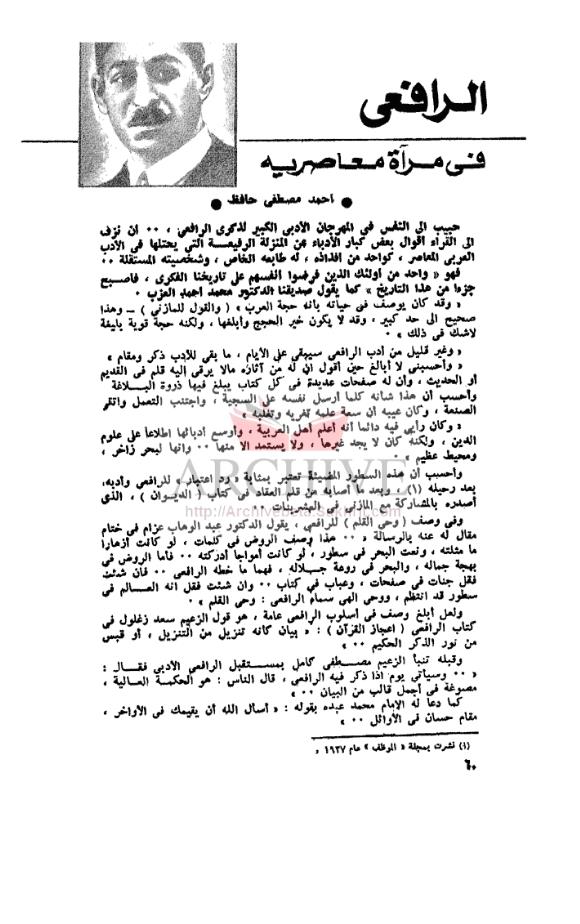 الرافعى
فى مرآة معاصريه
● احمد مصطفى حافظ ●
حبيب الى النفس فى المهرجان الأدبى الكبير لذكرى الرافعى ، ٠٠ ان نزف
الى القراء أقوال بعض كبار الأدباء عن المنزلة الرفيعة التى يحتلها فى الأدب
العربى المعاصر ، كواحد من أفذاذه ، له طابعه الخاص ، وشخصيته المستقلة ٠٠
فهو « واحد من أولئك الذين فرضوا أنفسهم على تاريخنا الفكرى ، فاصبح
جزءا من هذا التاريخ » كما يقول صديقنا الدكتور محمد أحمد العزب ٠
« وقد كان يوصف فى حياته بأنه حجة العرب » ( والقول للمازنى ) ــ وهذا
صحيح الى حد كبير ، وقد لا يكون خير الحجج وأبلغها ، ولكنه حجة قوية بليغة
لاشك فى ذلك » ٠
« وغير قليل من أدب الرافعى سيبقى على الأيام ، ما بقى للأدب ذكر ومقام »
« وأحسبنى لا أبالغ حين أقول ان له من آثاره مالا يرقى إليه قلم فى القديم
أو الحديث ، وأن له صفحات عديدة فى كل كتاب يبلغ فيها ذروة البــلاغة
وأحسب أن هذا شأنه كلما أرسل نفسه على السجية ، واجتنب التعمل واتقى
الصنعة ، وكان عيبه أن سعة علمه تغريه وتغلبه »
« وكان رأيى فيه دائما أنه أعلم أهل العربية ، وأوسع أدبائها اطلاعا على علوم
الدين ، ولكنه كان لا يجد غيرها ، ولا يستمد الا منها ٠٠ وانها لبحر زاخر ،
ومحيط عظيم » ٠
وأحسب أن هذه السطور المضيئة تعتبر بمثابة « رد اعتبار » للرافعى وأدبه،
بعد رحيله (١) ــ وبعد ما أصابه من قلم العقاد فى كتاب ( الديــوان ) ، الذى
أصدره بالمشاركة مع المازنى فى العشرينات ٠٠
ARCHIVE
http://Archivebeta.Sakhrit.com
وفى وصف ( وحى القلم ) للرافعى ، يقول الدكتور عبد الوهاب عزام فى ختام
مقال له عنه بالرسالة « ٠٠ هذا وصف الروض فى كلمات ، لو كانت أزهارا
ما مثلته ، ونعت البحر فى سطور ، لو كانت أمواجا أدركته ٠٠ فأما الروض فى
بهجة جماله ، والبحر فى روعة جــلاله ، فهما ما خطه الرافعى ٠٠ فان شئت
فقل جنات فى صفحات ، وعباب فى كتاب ٠٠ وان شئت فقل انه العــالم فى
سطور قد انتظم ، ووحى الهى سماه الرافعى : وحى القلم » ٠
ولعل أبلغ وصف فى أسلوب الرافعى عامة ، هو قول الزعيم سعد زغلول فى
كتاب الرافعى ( اعجاز القرآن ) : « بيان كأنه تنزيل من التنزيل ، أو قبس
من نور الذكر الحكيم ٠٠ »
وقبله تنبأ الزعيم مصــطفى كامل بمســتقبل الرافعى الأدبى فقــال :
« ٠٠ وسيأتى يوم اذا ذكر فيه الرافعى ، قال الناس : هو الحكمة العالية ،
مصوغة فى أجمل قالب من البيان ٠٠ »
كما دعا له الإمام محمد عبده بقوله : « أسأل الله أن يقيمك فى الأواخر ،
مقام حسان فى الأوائل ٠٠ »
(١) نشرت بمجلة « الموظف » عام ١٩٣٧ ٠
٦٠